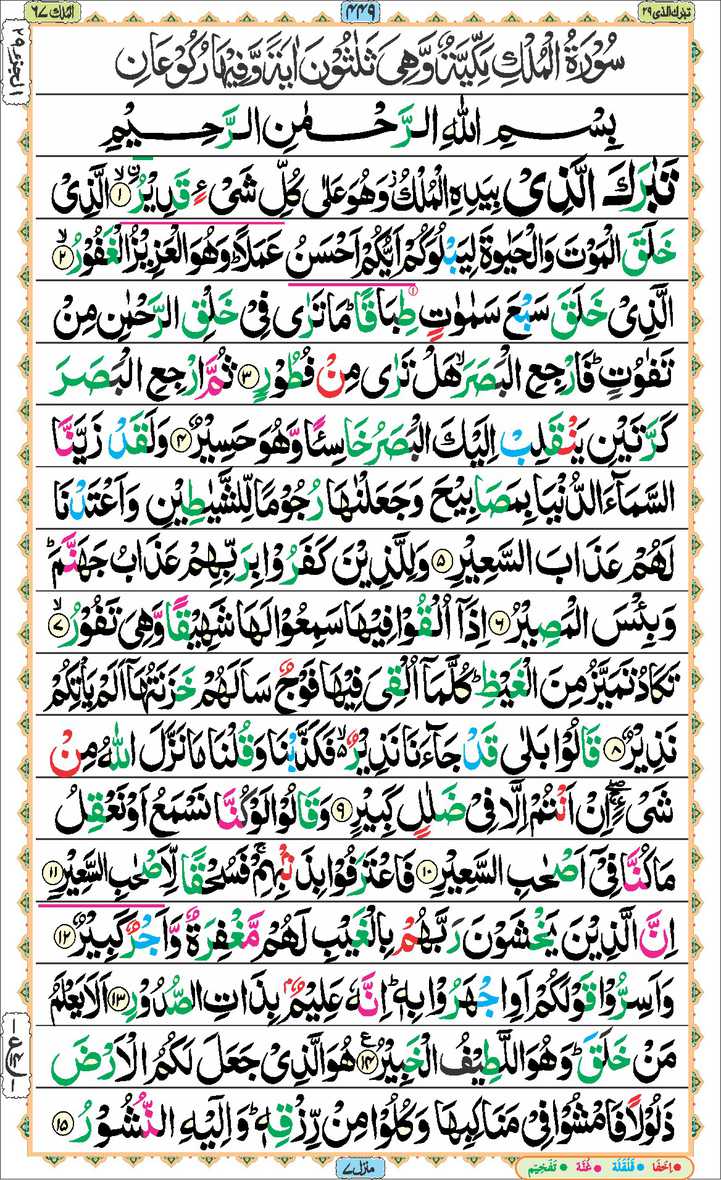 تبرك الذى ۲۹
۴۴۹
الملك ۶۷
الجزء ۲۹
سُوْرَةُ الْمُلْكِ مَكِّيَّةٌ وَّهِىَ ثَلٰثُوْنَ اٰيَةً وَّفِيْهَا رُكُوْعَانِ
بِسْمِ اللهِ الرَّحْمٰنِ الرَّحِيْمِ
تَبٰرَكَ الَّذِىْ بِيَدِهِ الْمُلْكُ ز وَهُوَ عَلٰى كُلِّ شَىْءٍ قَدِيْرُ ۙ ۱ الَّذِىْ
خَلَقَ الْمَوْتَ وَالْحَيٰوةَ لِيَبْلُوَكُمْ اَيُّكُمْ اَحْسَنُ عَمَلًا ؕ وَهُوَ الْعَزِيْزُ الْغَفُوْرُ ۙ ۲
الَّذِىْ خَلَقَ سَبْعَ سَمٰوٰتٍ طِبَاقًا ؕ مَا تَرٰى فِىْ خَلْقِ الرَّحْمٰنِ مِنْ
تَفٰوُتٍ ؕ فَارْجِعِ الْبَصَرَ ۙ هَلْ تَرٰى مِنْ فُطُوْرٍ ۳ ثُمَّ ارْجِعِ الْبَصَرَ
كَرَّتَيْنِ يَنْقَلِبْ اِلَيْكَ الْبَصَرُ خَاسِئًا وَّهُوَ حَسِيْرٌ ۴ وَلَقَدْ زَيَّنَّا
السَّمَآءَ الدُّنْيَا بِمَصَابِيْحَ وَجَعَلْنٰهَا رُجُوْمًا لِّلشَّيٰطِيْنِ وَاَعْتَدْنَا
لَهُمْ عَذَابَ السَّعِيْرِ ۵ وَلِلَّذِيْنَ كَفَرُوْا بِرَبِّهِمْ عَذَابُ جَهَنَّمَ ؕ
وَبِئْسَ الْمَصِيْرُ ۶ اِذَاۤ اُلْقُوْا فِيْهَا سَمِعُوْا لَهَا شَهِيْقًا وَّهِىَ تَفُوْرُ ۙ ۷
تَكَادُ تَمَيَّزُ مِنَ الْغَيْظِ ؕ كُلَّمَاۤ اُلْقِىَ فِيْهَا فَوْجٌ سَاَلَهُمْ خَزَنَتُهَاۤ اَلَمْ يَاْتِكُمْ
نَذِيْرٌ ۸ قَالُوْا بَلٰى قَدْ جَآءَنَا نَذِيْرٌ ۙ فَكَذَّبْنَا وَقُلْنَا مَا نَزَّلَ اللهُ مِنْ
شَىْءٍ ۖ اِنْ اَنْتُمْ اِلَّا فِىْ ضَلٰلٍ كَبِيْرٍ ۹ وَقَالُوْا لَوْ كُنَّا نَسْمَعُ اَوْ نَعْقِلُ
مَا كُنَّا فِىْۤ اَصْحٰبِ السَّعِيْرِ ۱۰ فَاعْتَرَفُوْا بِذَنْۢبِهِمْ ۚ فَسُحْقًا لِّاَصْحٰبِ السَّعِيْرِ ۱۱
اِنَّ الَّذِيْنَ يَخْشَوْنَ رَبَّهُمْ بِالْغَيْبِ لَهُمْ مَّغْفِرَةٌ وَّاَجْرٌ كَبِيْرٌ ۱۲
وَاَسِرُّوْا قَوْلَكُمْ اَوِ اجْهَرُوْا بِهٖ ؕ اِنَّهٗ عَلِيْمٌۢ بِذَاتِ الصُّدُوْرِ ۱۳ اَلَا يَعْلَمُ
مَنْ خَلَقَ ؕ وَهُوَ اللَّطِيْفُ الْخَبِيْرُ ۱۴ هُوَ الَّذِىْ جَعَلَ لَكُمُ الْاَرْضَ
ذَلُوْلًا فَامْشُوْا فِىْ مَنَاكِبِهَا وَكُلُوْا مِنْ رِّزْقِهٖ ؕ وَاِلَيْهِ النُّشُوْرُ ۱۵
منزل ۷
اِخفا قلقلة غنّة تفخيم